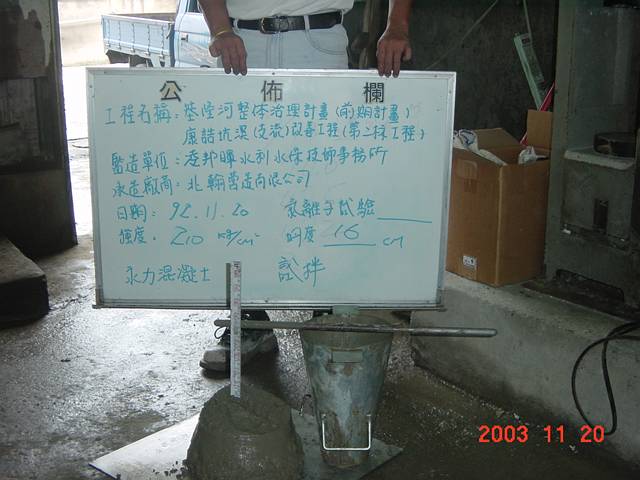 公佈欄
工程名稱:基隆河整体治理計畫(前期計畫)
康誥坑溪(支流)改善工程(第二標工程)
監造單位:凌邦暉水利水保技師事務所
承造廠商:北翰營造有限公司
日期:92.11.20 氯離子試驗
強度:210 kg/cm² 坍度 16 cm
永力混凝土 試拌
2003 11 20